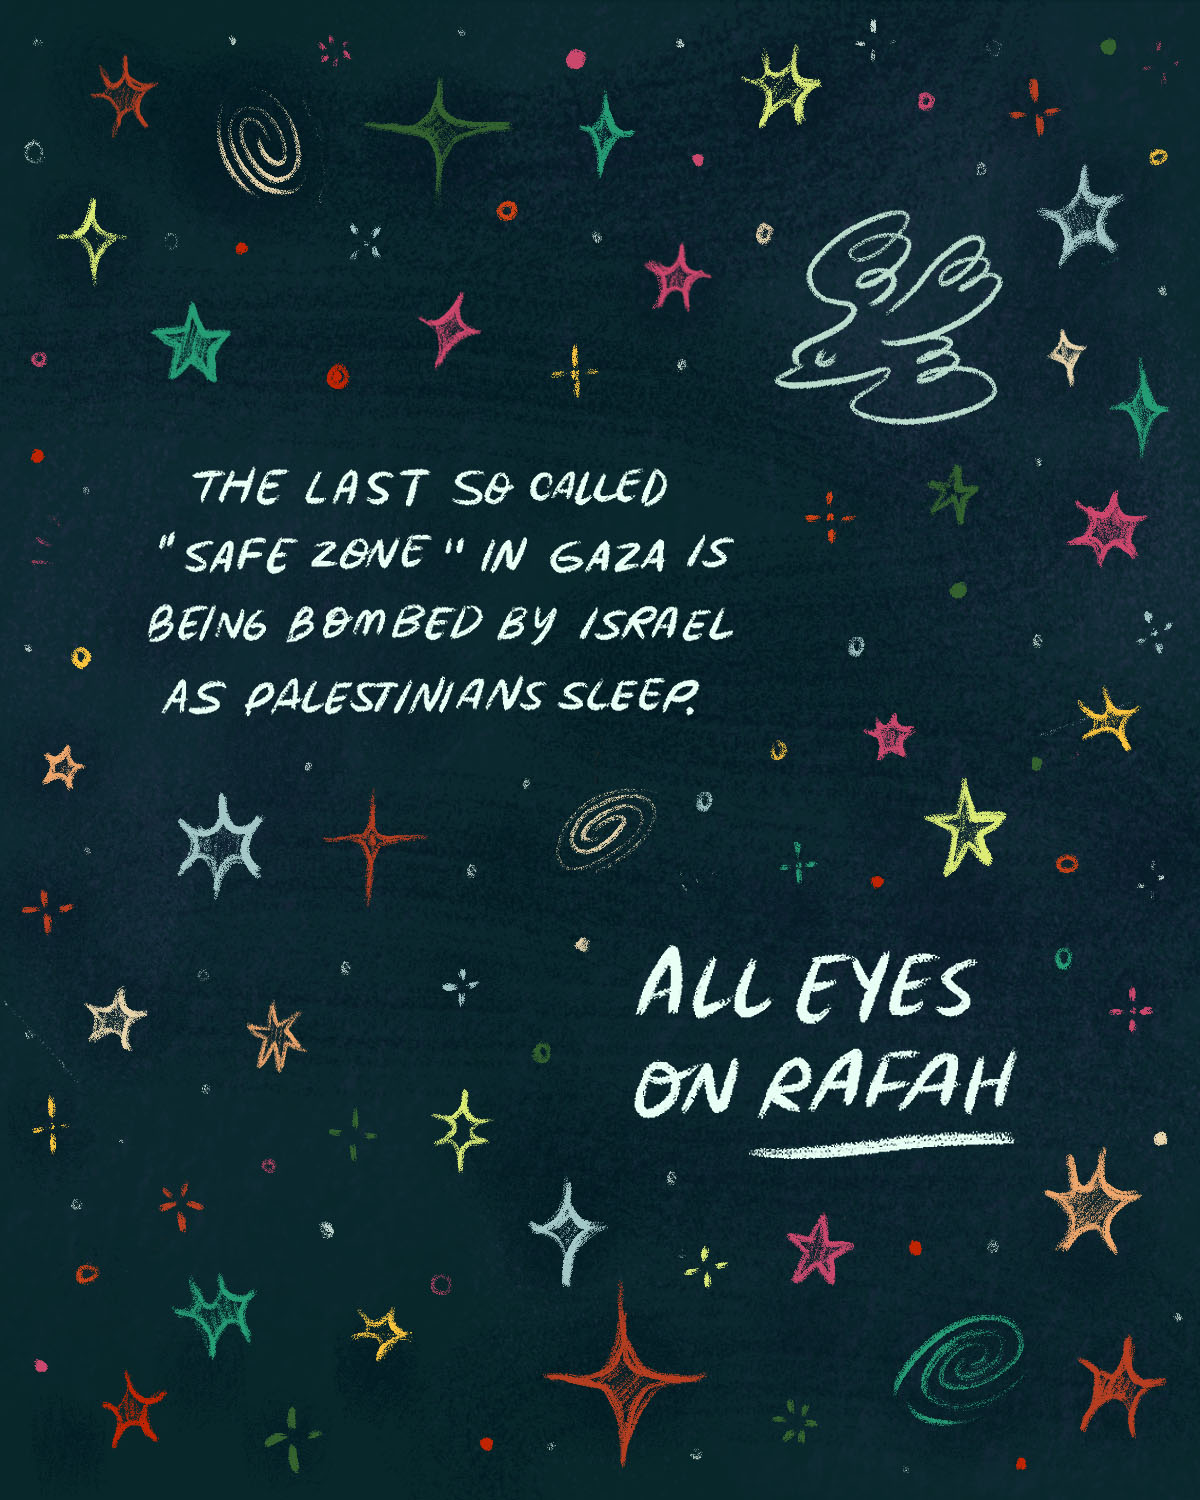 THE LAST SO CALLED
"SAFE ZONE" IN GAZA IS
BEING BOMBED BY ISRAEL
AS PALESTINIANS SLEEP.
ALL EYES
ON RAFAH